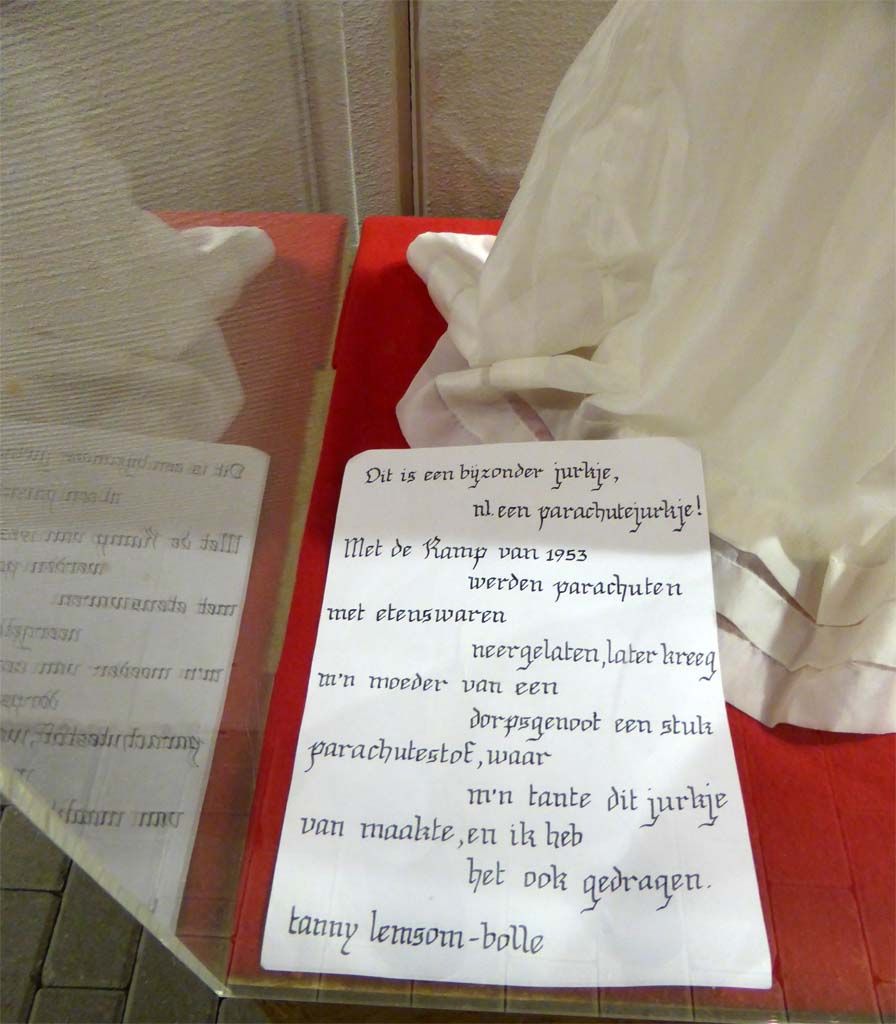 Dit is een bijzonder jurkje,
nl. een parachutejurkje!
Met de Ramp van 1953
werden parachuten
met etenswaren
neergelaten, later kreeg
m'n moeder van een
dorpsgenoot een stuk
parachutestof, waar
m'n tante dit jurkje
van maakte, en ik heb
het ook gedragen.
tanny lemsom-bolle